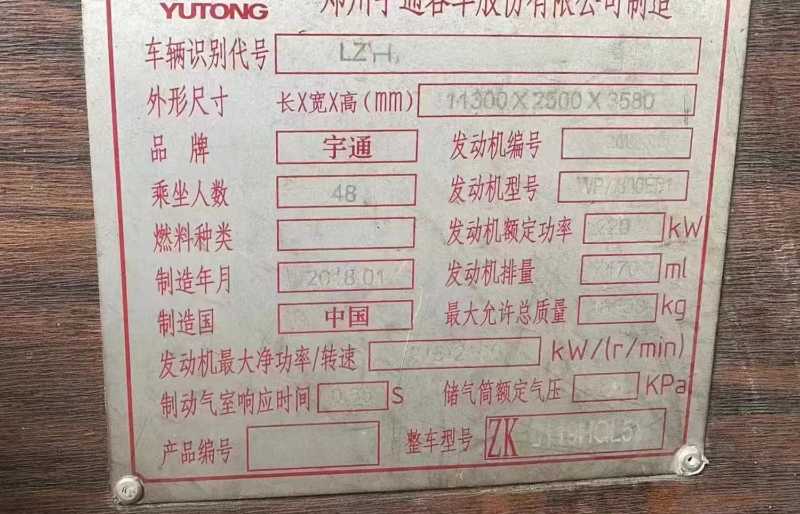 YUTONG 郑州宇通客车股份有限公司制造
车辆识别代号
外形尺寸 长X宽X高(mm) 11300X2500X3580
品牌 宇通 发动机编号
乘坐人数 48 发动机型号
燃料种类 发动机额定功率 220 kW
制造年月 2018.01 发动机排量 7470 ml
制造国 中国 最大允许总质量 kg
发动机最大净功率/转速 kW/(r/min)
制动气室响应时间 S 储气筒额定气压 KPa
产品编号 整车型号 ZK